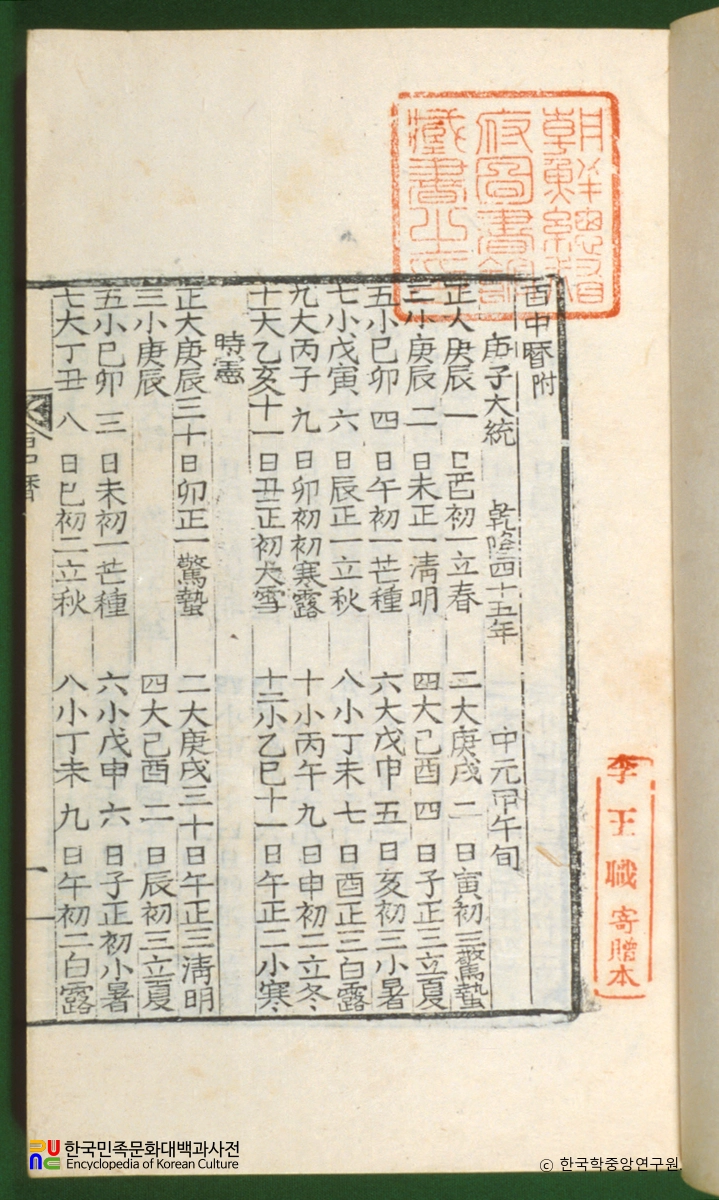 百中曆附
庚子大統 乾隆四十五年 中元甲午旬
正大庚辰一日酉初一立春 二大庚戌二日寅初三驚蟄
三小庚辰二日未正一淸明 四大己酉四日子正三立夏
五小己卯四日午初一芒種 六大戊申五日亥初三小暑
七小戊寅六日辰正一立秋 八小丁未七日酉正三白露
九大丙子九日卯初初寒露 十小丙午九日申初二立冬
十一大乙亥十一日丑正初大雪 十二小乙巳十一日午正二小寒
時憲
正大庚辰三十日卯正一驚蟄 二大庚戌三十日午正三淸明
三小庚辰 四大己酉二日辰初三立夏
五小己卯三日未初一芒種 六小戊申六日子正初小暑
七大丁丑八日巳初二立秋 八小丁未九日午初二白露
朝鮮總督
府圖書館
藏書之印
李王職寄贈本
한국민족문화대백과사전
Encyclopedia of Korean Culture
© 한국학중앙연구원